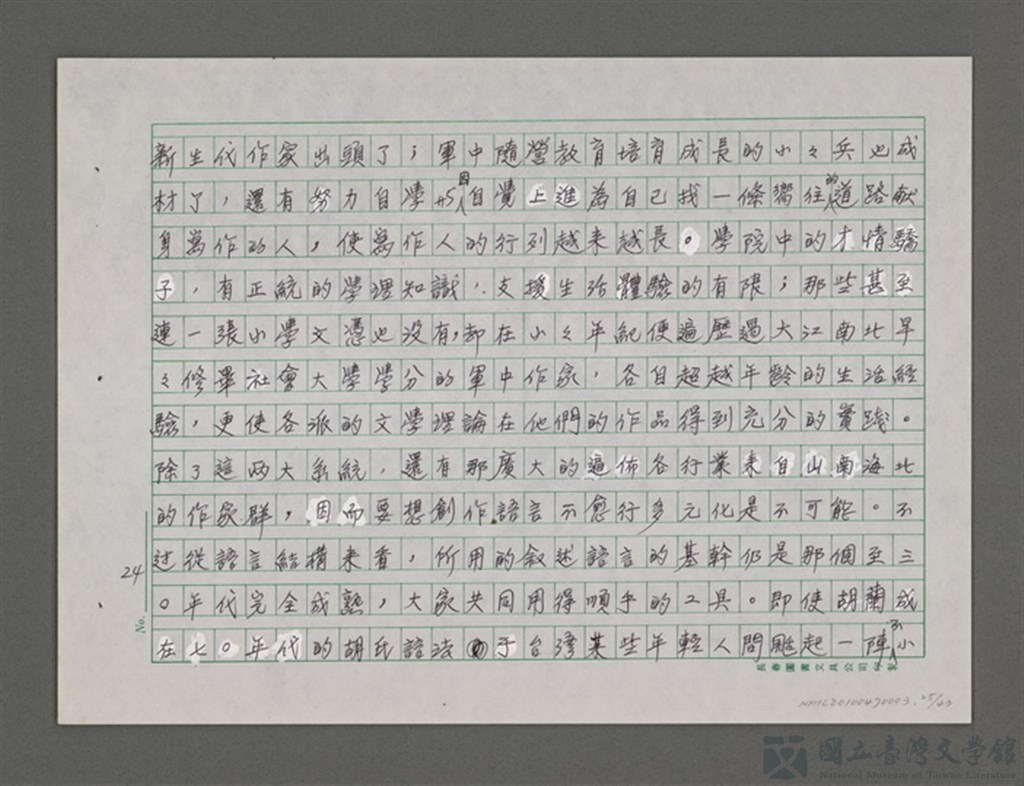 新生代作家出頭了；軍中隨營教育培育成長的小々兵也成
材了，還有努力自學形因自覺上進為自己找一條嚮往的道路献
身寫作的人，使寫作人的行列越来越長。學院中的才情驕
子，有正統的學理知識，支援生活體驗的有限；那些甚至
連一張小學文憑也没有，却在小々年紀便遍歷過大江南北早
々修畢社會大學學分的軍中作家，各自超越年齡的生活經
驗，更使各派的文學理論在他們的作品得到充分的實踐。
除了這两大系統，還有那廣大的遍佈各行業来自山南海北
的作家群，因而要想創作語言不愈行多元化是不可能。不
过從語言結構来看，所用的叙述語言的基幹仍是那個至三
〇年代完全成熟，大家共同用得順手的工具。即使胡蘭成
在七〇年代的胡氏語法于台湾某些年輕人間颳起一陣不小
24
No.
長春圖書文具公司
NMTL20100470003. 25/43
國立臺灣文學館
National Museum of Taiwan Literature